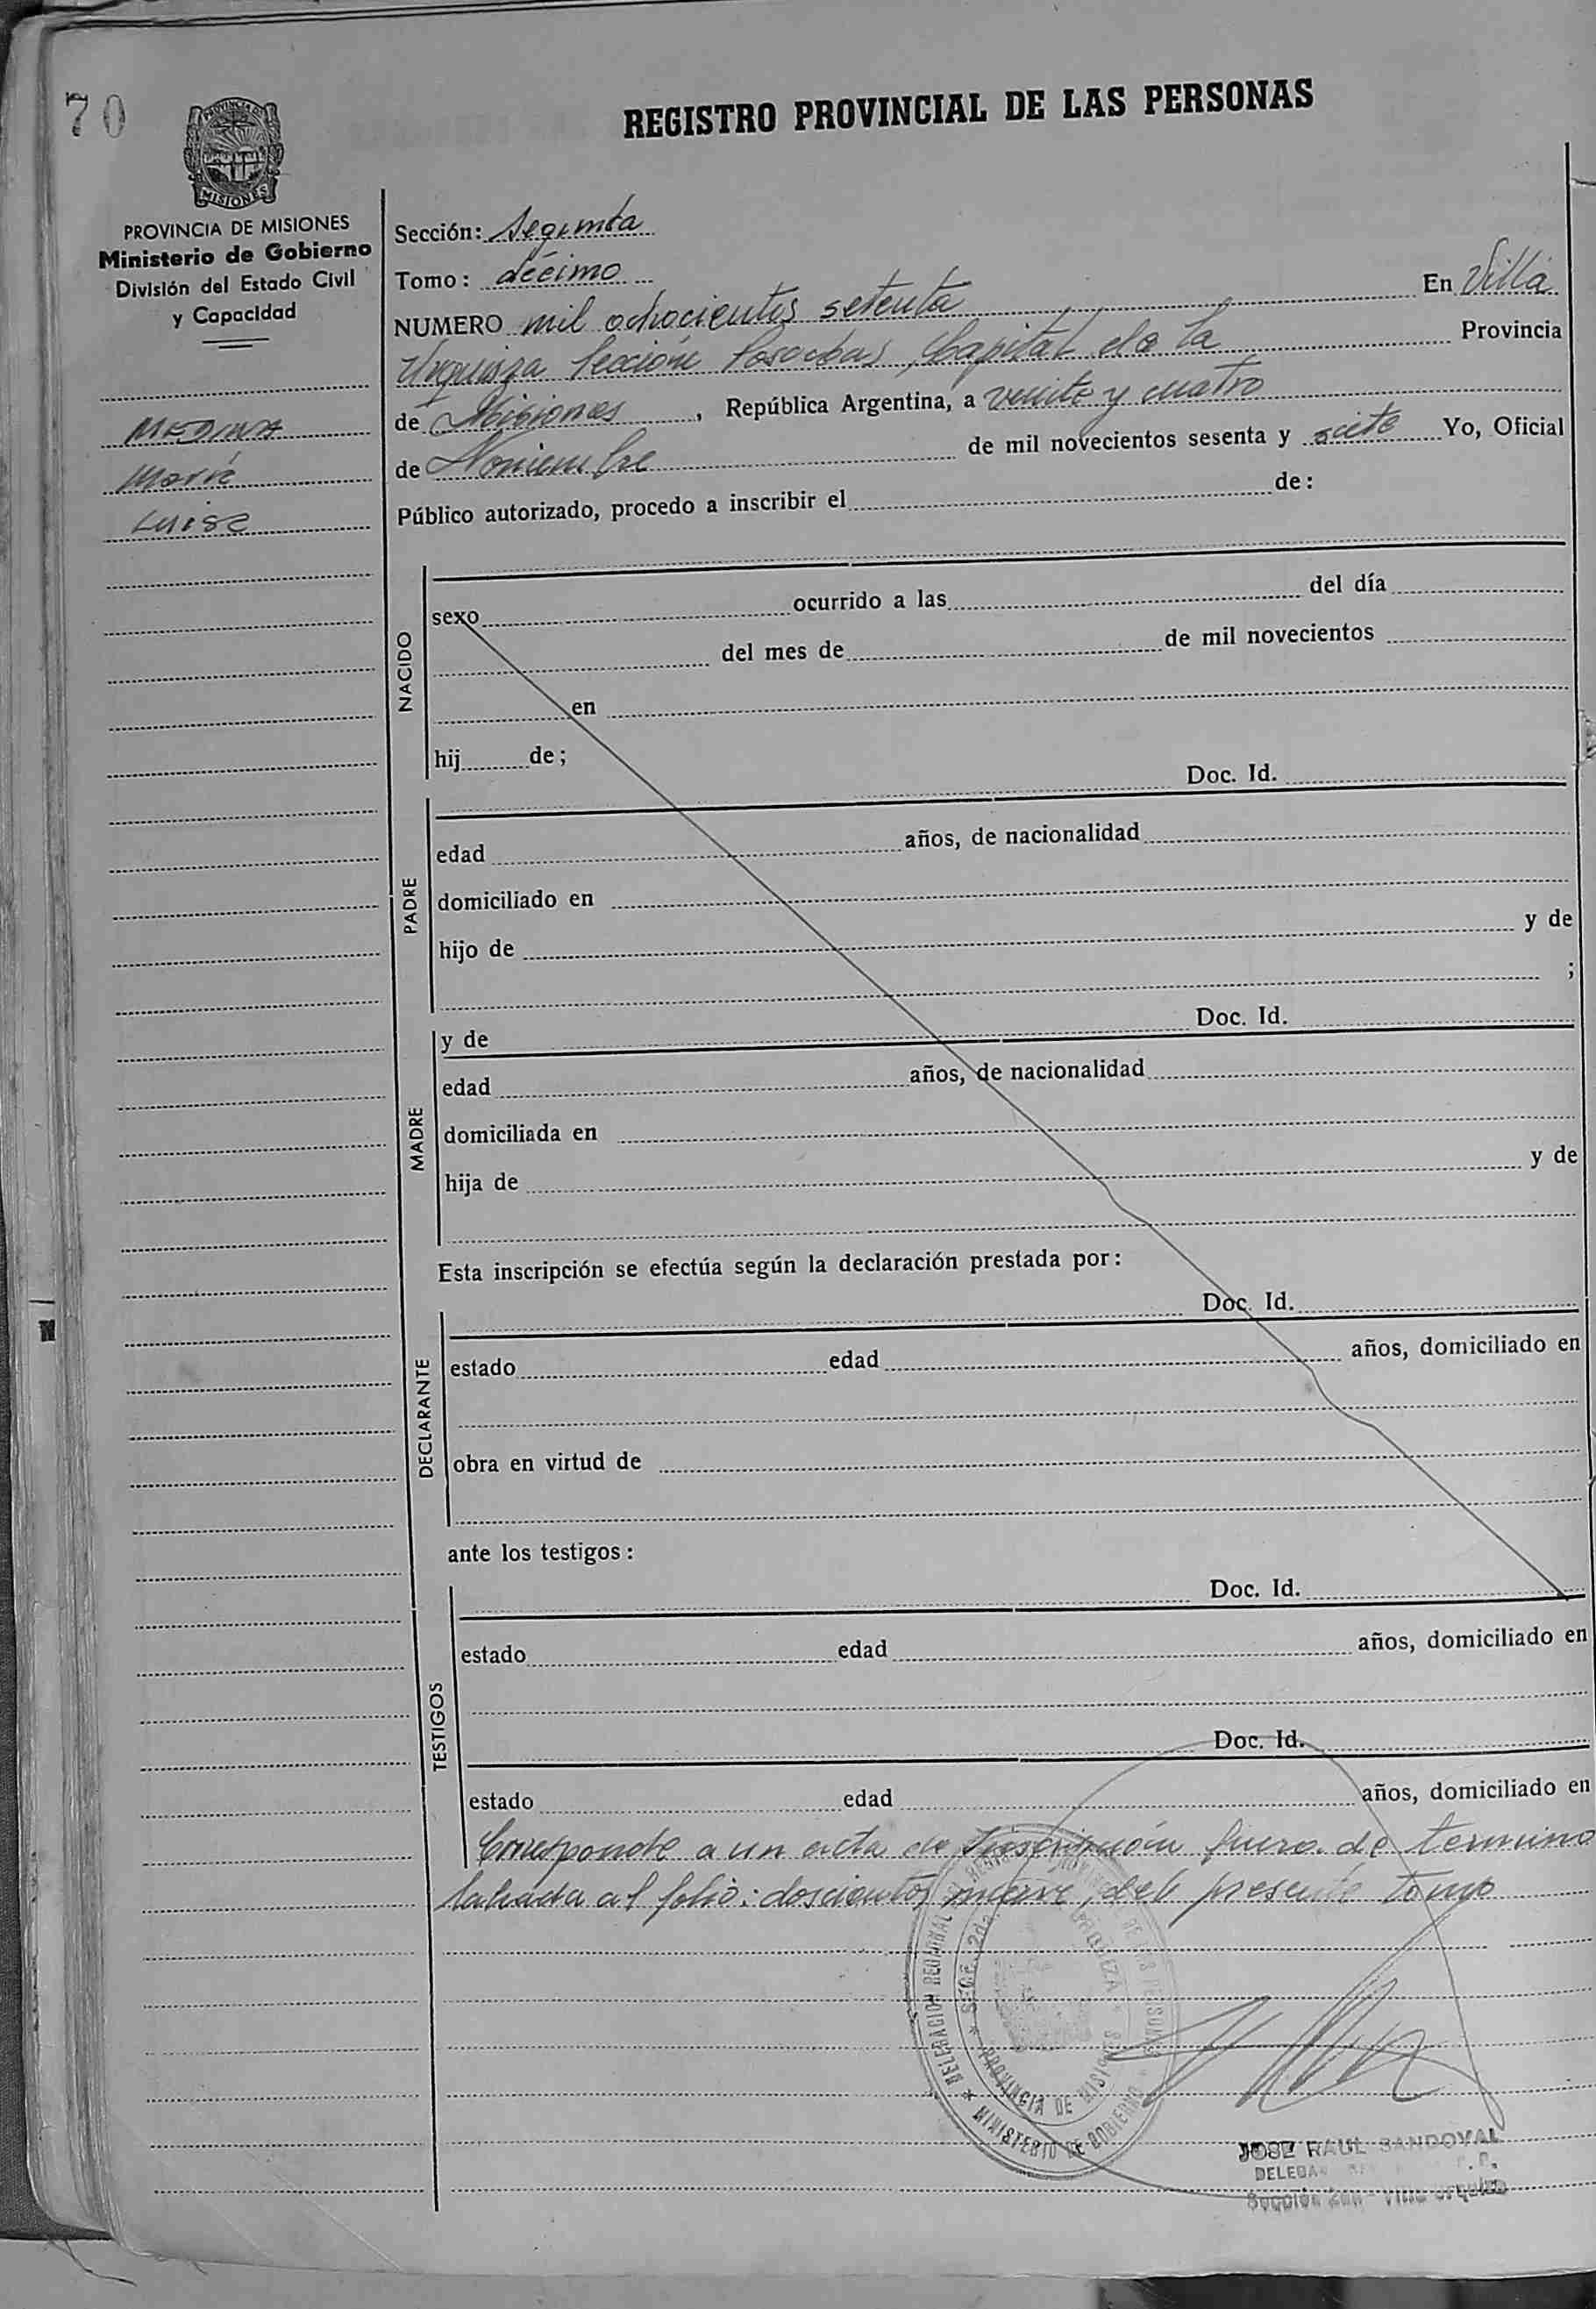 70
REGISTRO PROVINCIAL DE LAS PERSONAS
PROVINCIA DE
MISIONES
PROVINCIA DE MISIONES
Ministerio de Gobierno
División del Estado Civil
y Capacidad
MEDINA
María
Luisa
Sección: Segunda
Tomo: décimo
NUMERO mil ochocientos setenta En Villa
Urquiza Sección Posadas, Capital de la Provincia
de Misiones, República Argentina, a veinte y cuatro
de Noviembre de mil novecientos sesenta y siete Yo, Oficial
Público autorizado, procedo a inscribir el de:
NACIDO
sexo ocurrido a las del día
del mes de de mil novecientos
en
hij de;
PADRE
Doc. Id.
edad años, de nacionalidad
domiciliado en
hijo de y de
;
MADRE
y de Doc. Id.
edad años, de nacionalidad
domiciliada en
hija de y de
Esta inscripción se efectúa según la declaración prestada por:
DECLARANTE
Doc. Id.
estado edad años, domiciliado en
obra en virtud de
ante los testigos:
TESTIGOS
Doc. Id.
estado edad años, domiciliado en
Doc. Id.
estado edad años, domiciliado en
Corresponde a un acta de Inscripción fuera de termino
labrada al folio: doscientos nueve, del presente tomo
DELEGACION REGIONAL DE LAS PERSONAS
* SECC. 2da. URQUIZA *
PROVINCIA DE MISIONES
* MINISTERIO DE GOBIERNO
JOSE RAUL SANDOVAL
Sección 2da - Villa Urquiza